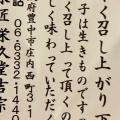 く召し上がり下
子は生きものですの
く召し上って頂くの
しく味わって頂く
府豊中市庄内西町3・1
話 06・6332・1440
近 栄久堂吉宗